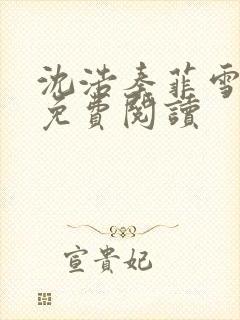 沈浩秦菲雪
免費閱讀
宣貴妃